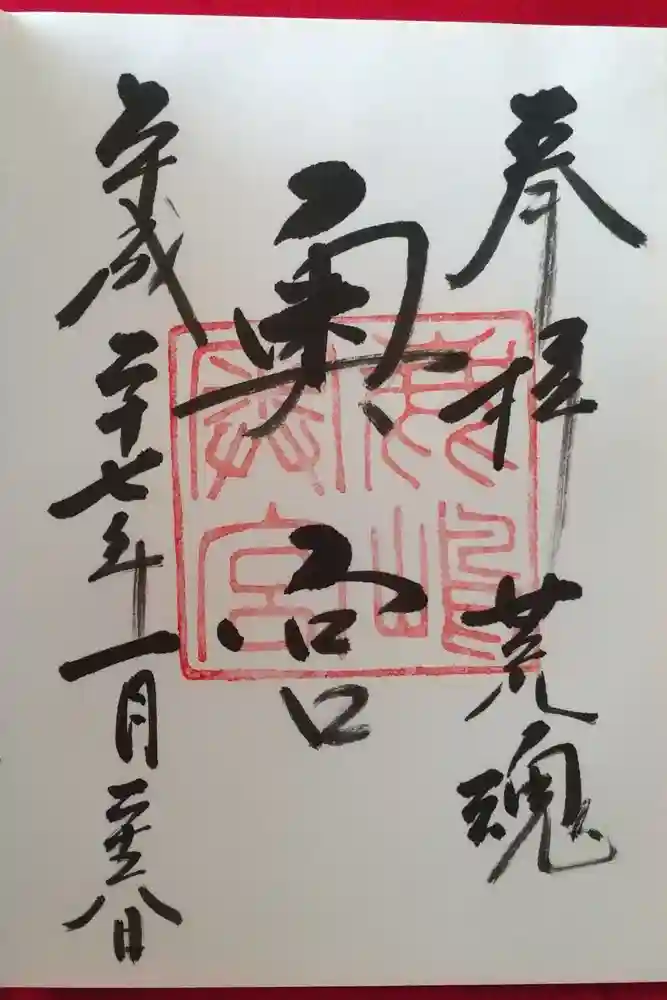 奉拝 荒魂
奥宮
平成二十七年一月二十八日
鹿嶋
奥宮